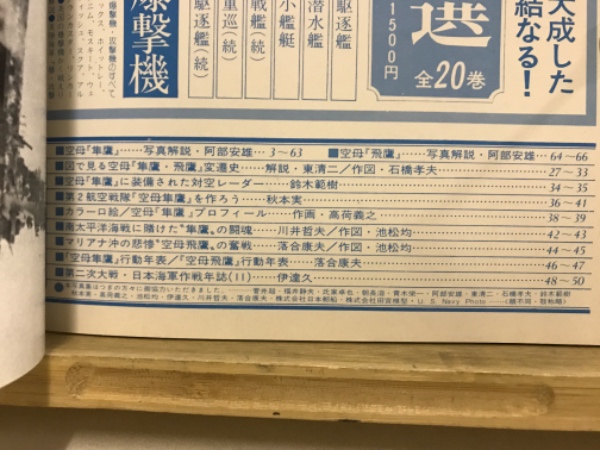 大成した
結なる!
選
1500円
全20巻
駆逐艦
潜水艦
小艦艇
戦艦(続)
重巡(続)
駆逐艦(続)
爆撃機
爆撃機・攻撃機のすべて
■空母『隼鷹』……写真解説・阿部安雄…3〜63
■空母『飛鷹』……写真解説・阿部安雄…64〜66
■図で見る空母『隼鷹・飛鷹』変遷史……解説・東清二/作図・石橋孝夫……27〜33
■空母『隼鷹』に装備された対空レーダー……鈴木範樹……34〜35
■第2航空戦隊『空母隼鷹』を作ろう……秋本実……36〜41
■カラー口絵/空母『隼鷹』プロフィール……作画・高荷義之……38〜39
■南太平洋海戦に賭けた"隼鷹"の闘魂……川井哲夫/作図・池松均……42〜43
■マリアナ沖の悲惨"空母飛鷹"の奮戦……落合康夫/作図・池松均……44〜45
■『空母隼鷹』行動年表/『空母飛鷹』行動年表……落合康夫……46〜47
■第二次大戦・日本海軍作戦年誌(11)……伊達久……48〜50
秋本実・高荷義之・池松均・伊達久・川井哲夫・落合康夫・株式会社日本郵船・株式会社田宮模型・U.S. Navy Photo……(順不同・敬称略)